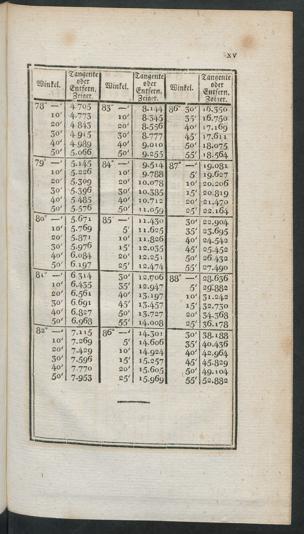 XV
Winkel. Tangente oder Entfern. Zeiger. Winkel. Tangente oder Entfern. Zeiger. Winkel. Tangente oder Entfern. Zeiger.
78° —′ 4.705 83° —′ 8.144 86° 30′ 16.350
10′ 4.773 10′ 8.345 35′ 16.750
20′ 4.843 20′ 8.556 40′ 17.169
30′ 4.915 30′ 8.777 45′ 17.611
40′ 4.989 40′ 9.010 50′ 18.075
50′ 5.066 50′ 9.255 55′ 18.564
79° —′ 5.145 84° —′ 9.514 87° —′ 19.081
10′ 5.226 10′ 9.788 5′ 19.627
20′ 5.309 20′ 10.078 10′ 20.206
30′ 5.396 30′ 10.385 15′ 20.819
40′ 5.485 40′ 10.712 20′ 21.470
50′ 5.576 50′ 11.059 25′ 22.164
80° —′ 5.671 85° —′ 11.430 30′ 22.904
10′ 5.769 5′ 11.625 35′ 23.695
20′ 5.871 10′ 11.826 40′ 24.542
30′ 5.976 15′ 12.035 45′ 25.452
40′ 6.084 20′ 12.251 50′ 26.432
50′ 6.197 25′ 12.474 55′ 27.490
81° —′ 6.314 30′ 12.706 88° —′ 28.636
10′ 6.435 35′ 12.947 5′ 29.882
20′ 6.561 40′ 13.197 10′ 31.242
30′ 6.691 45′ 13.457 15′ 32.730
40′ 6.827 50′ 13.727 20′ 34.368
50′ 6.968 55′ 14.008 25′ 36.178
82° —′ 7.115 86° —′ 14.301 30′ 38.188
10′ 7.269 5′ 14.606 35′ 40.436
20′ 7.429 10′ 14.924 40′ 42.964
30′ 7.596 15′ 15.257 45′ 45.829
40′ 7.770 20′ 15.605 50′ 49.104
50′ 7.953 25′ 15.969 55′ 52.882